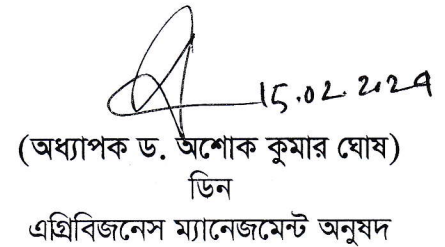 15.02.2024
(অধ্যাপক ড. অশোক কুমার ঘোষ)
ডিন
এগ্রিবিজনেস ম্যানেজমেন্ট অনুষদ